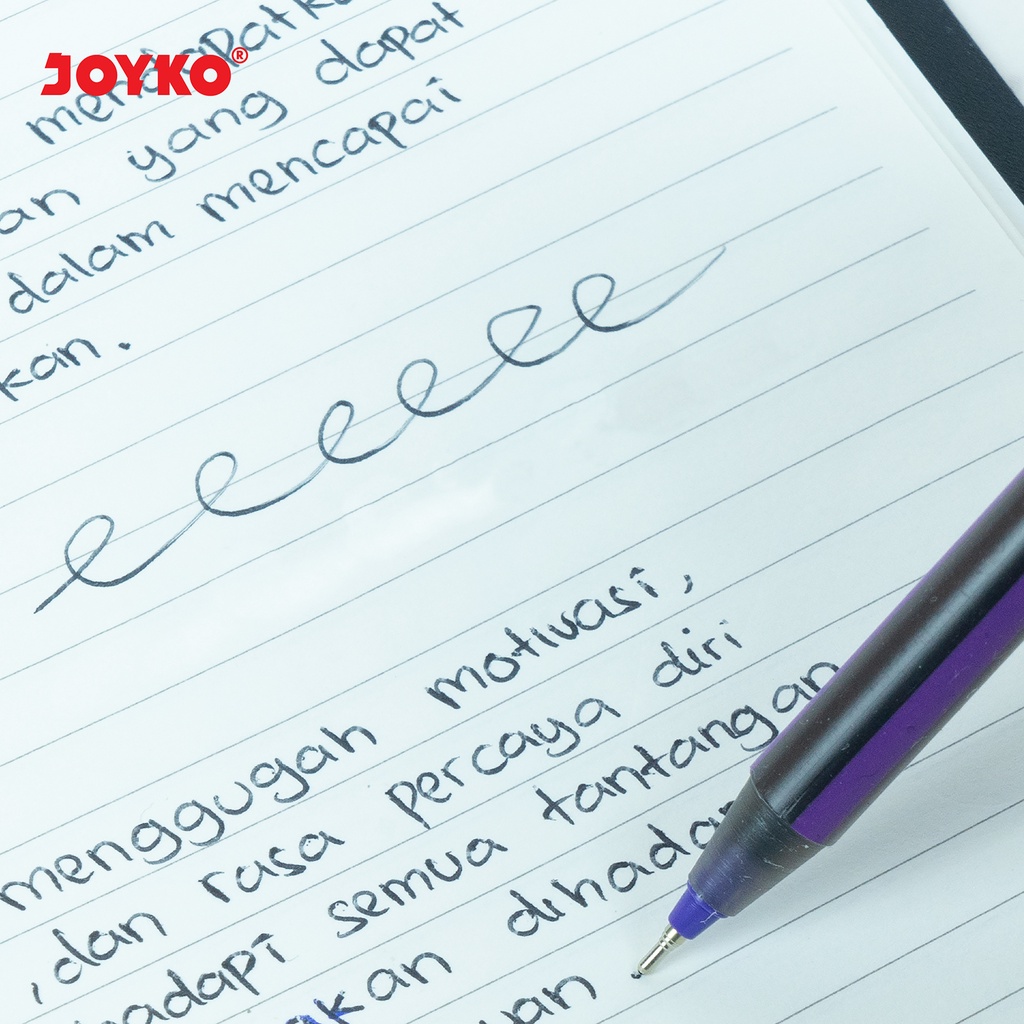 JOYKO®
yang dapat
an dalam mencapai
kan.
menggugah motivasi,
,dan rasa percaya diri
adapi semua tantangan
akan dihadap
an